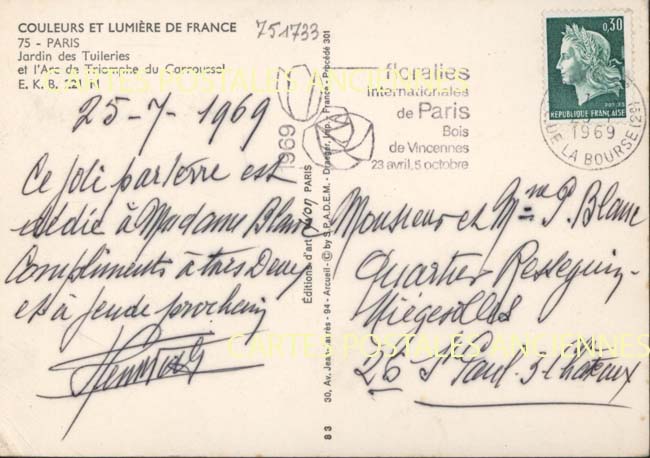 COULEURS ET LUMIÈRE DE FRANCE
75 - PARIS
Jardin des Tuileries
et l'Arc de Triomphe du Carrousel
E. K. B.
751733
floralies
internationales
de Paris
Bois
de Vincennes
23 avril, 5 octobre
1969
0,30
REPUBLIQUE FRANÇAISE
1969
RUE LA BOURSE (2e)
25-7-1969
Ce joli parterre est
dédié à Madame Blanc
Compliments à tous Deux
et à jeudi prochain
Éditions d'art yvon PARIS
30, Av. Jean-Jaurès - 94 - Arcueil - © by S.P.A.D.E.M. - Draeger, Imp. - France - Procédé 301
83
Monsieur et Mme P. Blanc
Quartier
26 St Paul-3-Châteaux
CARTES POSTALES ANCIENNES
CARTES POSTALES ANCIENNES